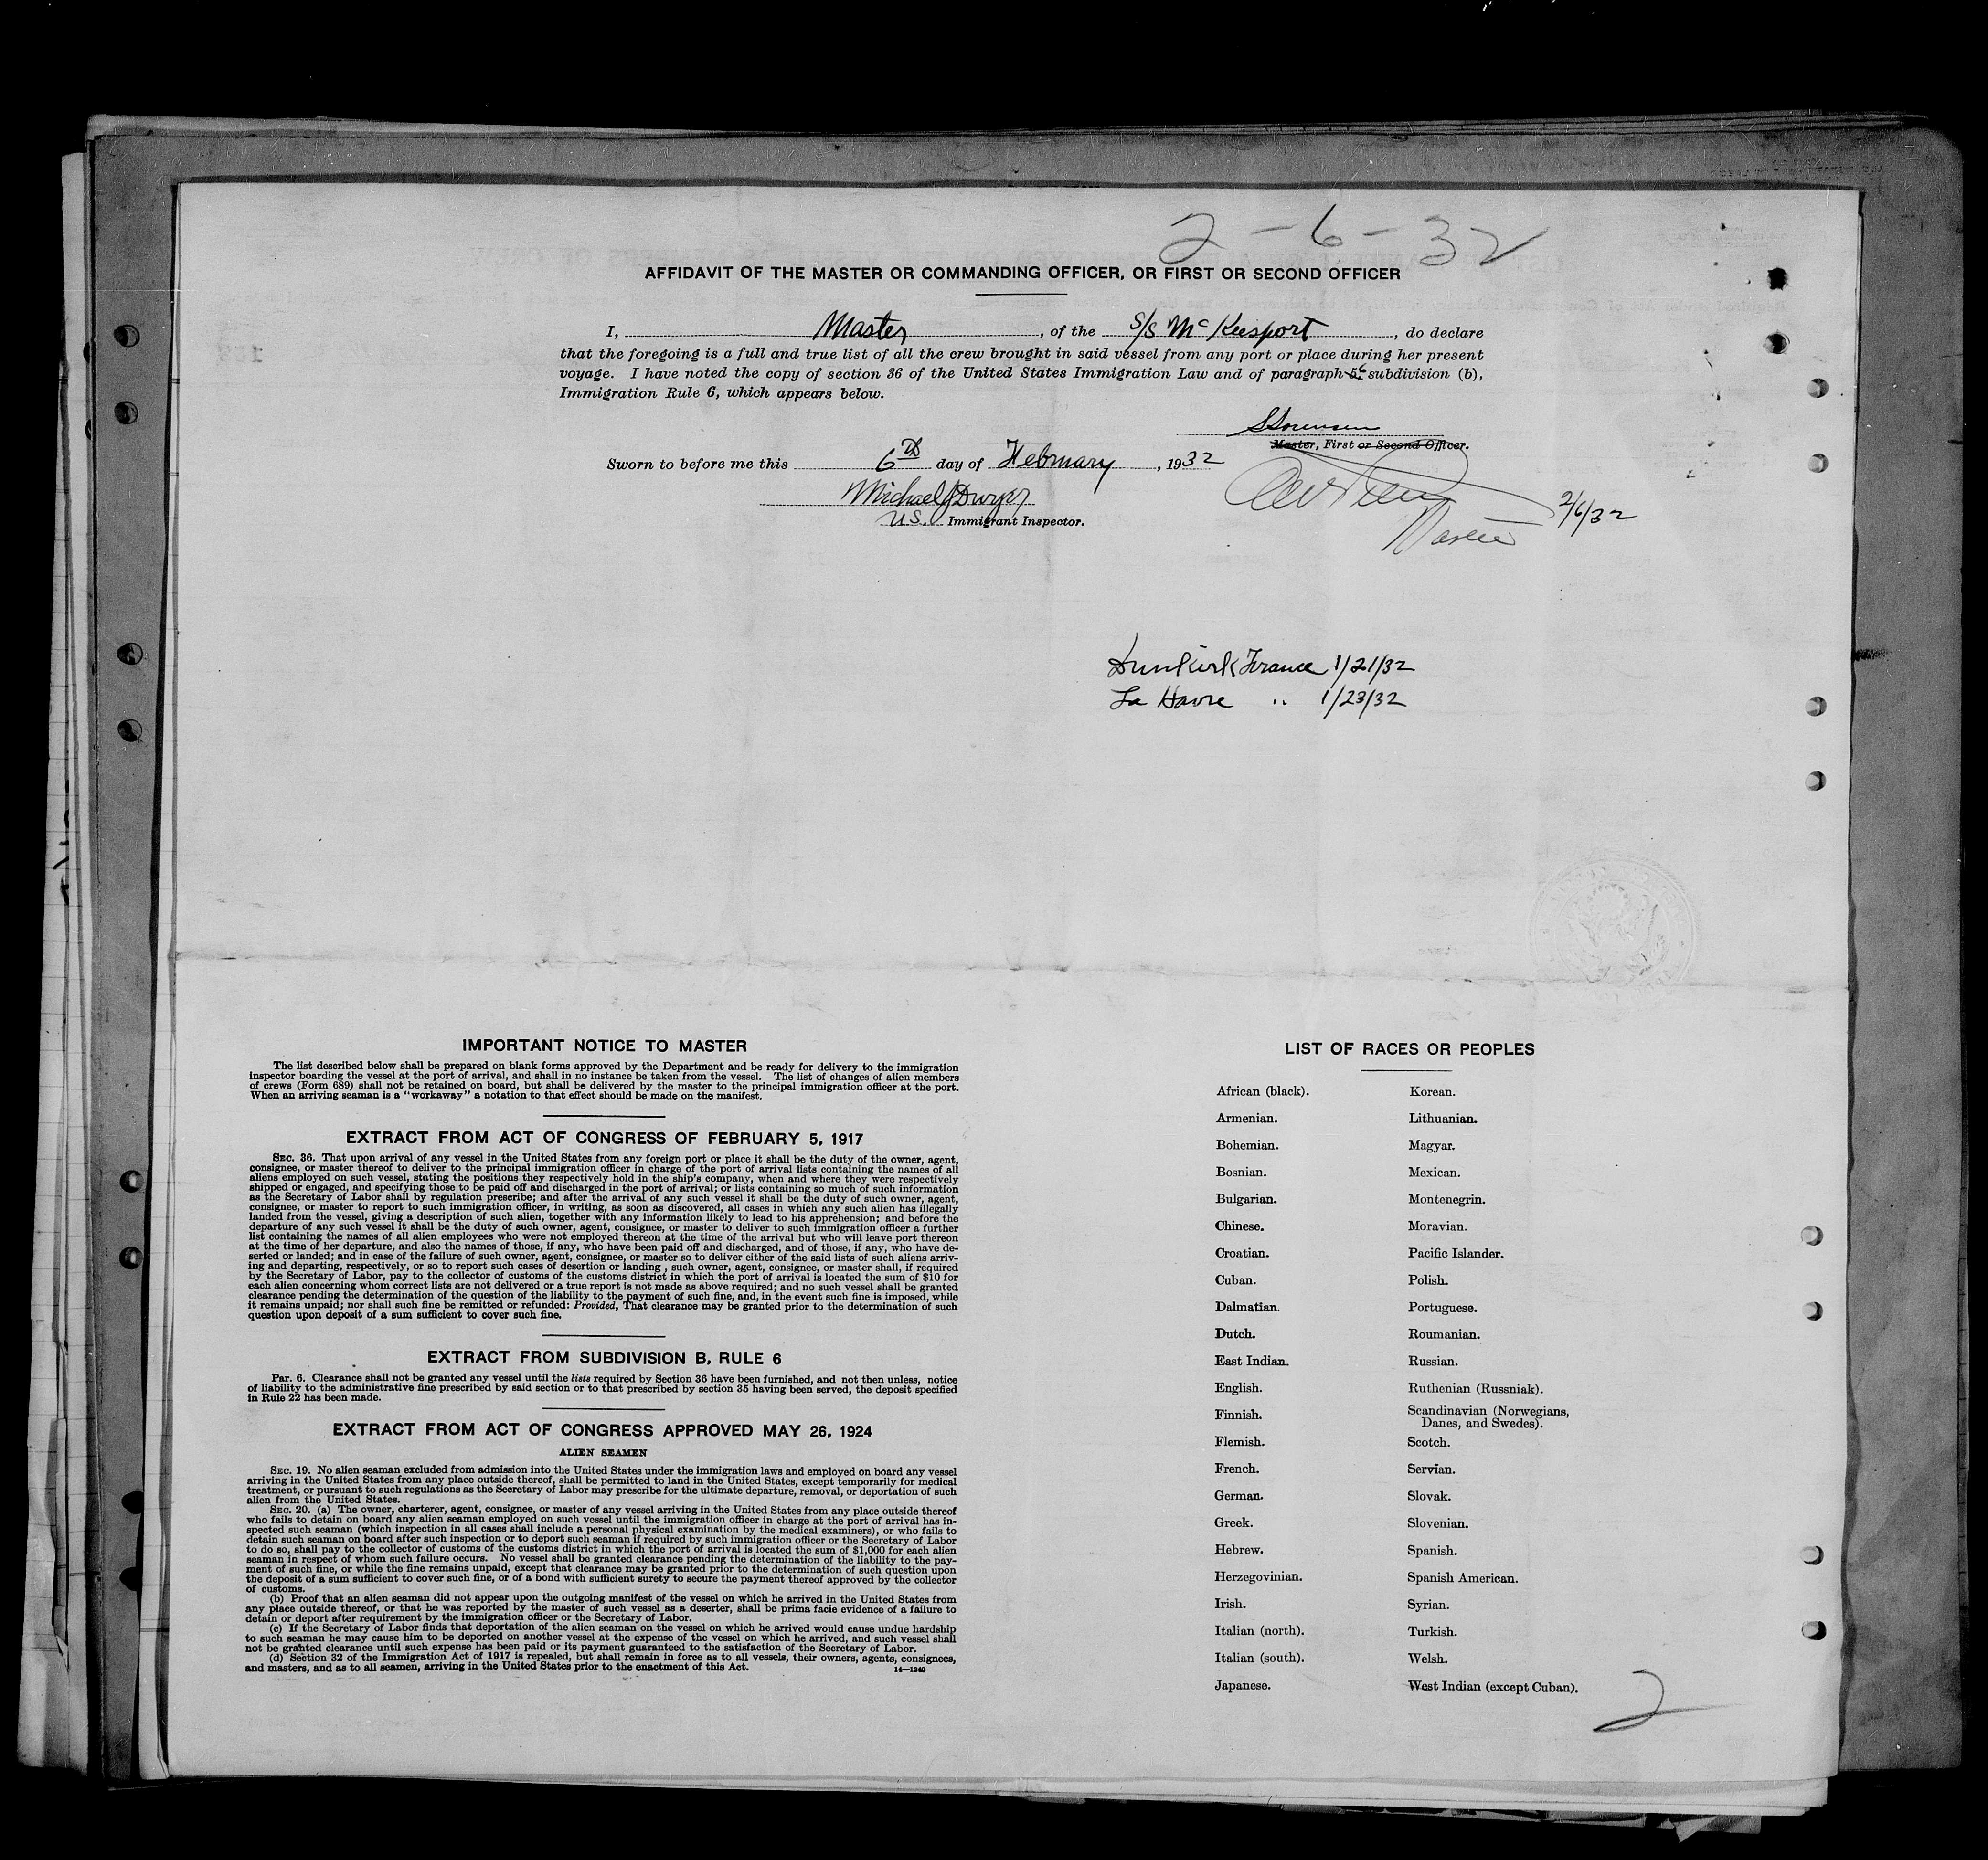 2-6-32
AFFIDAVIT OF THE MASTER OR COMMANDING OFFICER, OR FIRST OR SECOND OFFICER
I, Master, of the S/S McKeesport, do declare
that the foregoing is a full and true list of all the crew brought in said vessel from any port or place during her present
voyage. I have noted the copy of section 36 of the United States Immigration Law and of paragraph 5 6 subdivision (b),
Immigration Rule 6, which appears below.
SSorensen
Master, First or Second Officer.
Sworn to before me this 6th day of February, 1932
Michael J Dwyer
U.S. Immigrant Inspector.
Master 2/6/32
Dunkirk France 1/21/32
La Havre " 1/23/32
IMPORTANT NOTICE TO MASTER
The list described below shall be prepared on blank forms approved by the Department and be ready for delivery to the immigration
inspector boarding the vessel at the port of arrival, and shall in no instance be taken from the vessel. The list of changes of alien members
of crews (Form 689) shall not be retained on board, but shall be delivered by the master to the principal immigration officer at the port.
When an arriving seaman is a "workaway" a notation to that effect should be made on the manifest.
EXTRACT FROM ACT OF CONGRESS OF FEBRUARY 5, 1917
SEC. 36. That upon arrival of any vessel in the United States from any foreign port or place it shall be the duty of the owner, agent,
consignee, or master thereof to deliver to the principal immigration officer in charge of the port of arrival lists containing the names of all
aliens employed on such vessel, stating the positions they respectively hold in the ship's company, when and where they were respectively
shipped or engaged, and specifying those to be paid off and discharged in the port of arrival; or lists containing so much of such information
as the Secretary of Labor shall by regulation prescribe; and after the arrival of any such vessel it shall be the duty of such owner, agent,
consignee, or master to report to such immigration officer, in writing, as soon as discovered, all cases in which any such alien has illegally
landed from the vessel, giving a description of such alien, together with any information likely to lead to his apprehension; and before the
departure of any such vessel it shall be the duty of such owner, agent, consignee, or master to deliver to such immigration officer a further
list containing the names of all alien employees who were not employed thereon at the time of the arrival but who will leave port thereon
at the time of her departure, and also the names of those, if any, who have been paid off and discharged, and of those, if any, who have de-
serted or landed; and in case of the failure of such owner, agent, consignee, or master so to deliver either of the said lists of such aliens arriv-
ing and departing, respectively, or so to report such cases of desertion or landing , such owner, agent, consignee, or master shall, if required
by the Secretary of Labor, pay to the collector of customs of the customs district in which the port of arrival is located the sum of $10 for
each alien concerning whom correct lists are not delivered or a true report is not made as above required; and no such vessel shall be granted
clearance pending the determination of the question of the liability to the payment of such fine, and, in the event such fine is imposed, while
it remains unpaid; nor shall such fine be remitted or refunded: Provided, That clearance may be granted prior to the determination of such
question upon deposit of a sum sufficient to cover such fine.
EXTRACT FROM SUBDIVISION B, RULE 6
Par. 6. Clearance shall not be granted any vessel until the lists required by Section 36 have been furnished, and not then unless, notice
of liability to the administrative fine prescribed by said section or to that prescribed by section 35 having been served, the deposit specified
in Rule 22 has been made.
EXTRACT FROM ACT OF CONGRESS APPROVED MAY 26, 1924
ALIEN SEAMEN
SEC. 19. No alien seaman excluded from admission into the United States under the immigration laws and employed on board any vessel
arriving in the United States from any place outside thereof, shall be permitted to land in the United States, except temporarily for medical
treatment, or pursuant to such regulations as the Secretary of Labor may prescribe for the ultimate departure, removal, or deportation of such
alien from the United States.
SEC. 20. (a) The owner, charterer, agent, consignee, or master of any vessel arriving in the United States from any place outside thereof
who fails to detain on board any alien seaman employed on such vessel until the immigration officer in charge at the port of arrival has in-
spected such seaman (which inspection in all cases shall include a personal physical examination by the medical examiners), or who fails to
detain such seaman on board after such inspection or to deport such seaman if required by such immigration officer or the Secretary of Labor
to do so, shall pay to the collector of customs of the customs district in which the port of arrival is located the sum of $1,000 for each alien
seaman in respect of whom such failure occurs. No vessel shall be granted clearance pending the determination of the liability to the pay-
ment of such fine, or while the fine remains unpaid, except that clearance may be granted prior to the determination of such question upon
the deposit of a sum sufficient to cover such fine, or of a bond with sufficient surety to secure the payment thereof approved by the collector
of customs.
(b) Proof that an alien seaman did not appear upon the outgoing manifest of the vessel on which he arrived in the United States from
any place outside thereof, or that he was reported by the master of such vessel as a deserter, shall be prima facie evidence of a failure to
detain or deport after requirement by the immigration officer or the Secretary of Labor.
(c) If the Secretary of Labor finds that deportation of the alien seaman on the vessel on which he arrived would cause undue hardship
to such seaman he may cause him to be deported on another vessel at the expense of the vessel on which he arrived, and such vessel shall
not be granted clearance until such expense has been paid or its payment guaranteed to the satisfaction of the Secretary of Labor.
(d) Section 32 of the Immigration Act of 1917 is repealed, but shall remain in force as to all vessels, their owners, agents, consignees,
and masters, and as to all seamen, arriving in the United States prior to the enactment of this Act.
14—1240
LIST OF RACES OR PEOPLES
African (black).
Armenian.
Bohemian.
Bosnian.
Bulgarian.
Chinese.
Croatian.
Cuban.
Dalmatian.
Dutch.
East Indian.
English.
Finnish.
Flemish.
French.
German.
Greek.
Hebrew.
Herzegovinian.
Irish.
Italian (north).
Italian (south).
Japanese.
Korean.
Lithuanian.
Magyar.
Mexican.
Montenegrin.
Moravian.
Pacific Islander.
Polish.
Portuguese.
Roumanian.
Russian.
Ruthenian (Russniak).
Scandinavian (Norwegians,
Danes, and Swedes).
Scotch.
Servian.
Slovak.
Slovenian.
Spanish.
Spanish American.
Syrian.
Turkish.
Welsh.
West Indian (except Cuban).
2